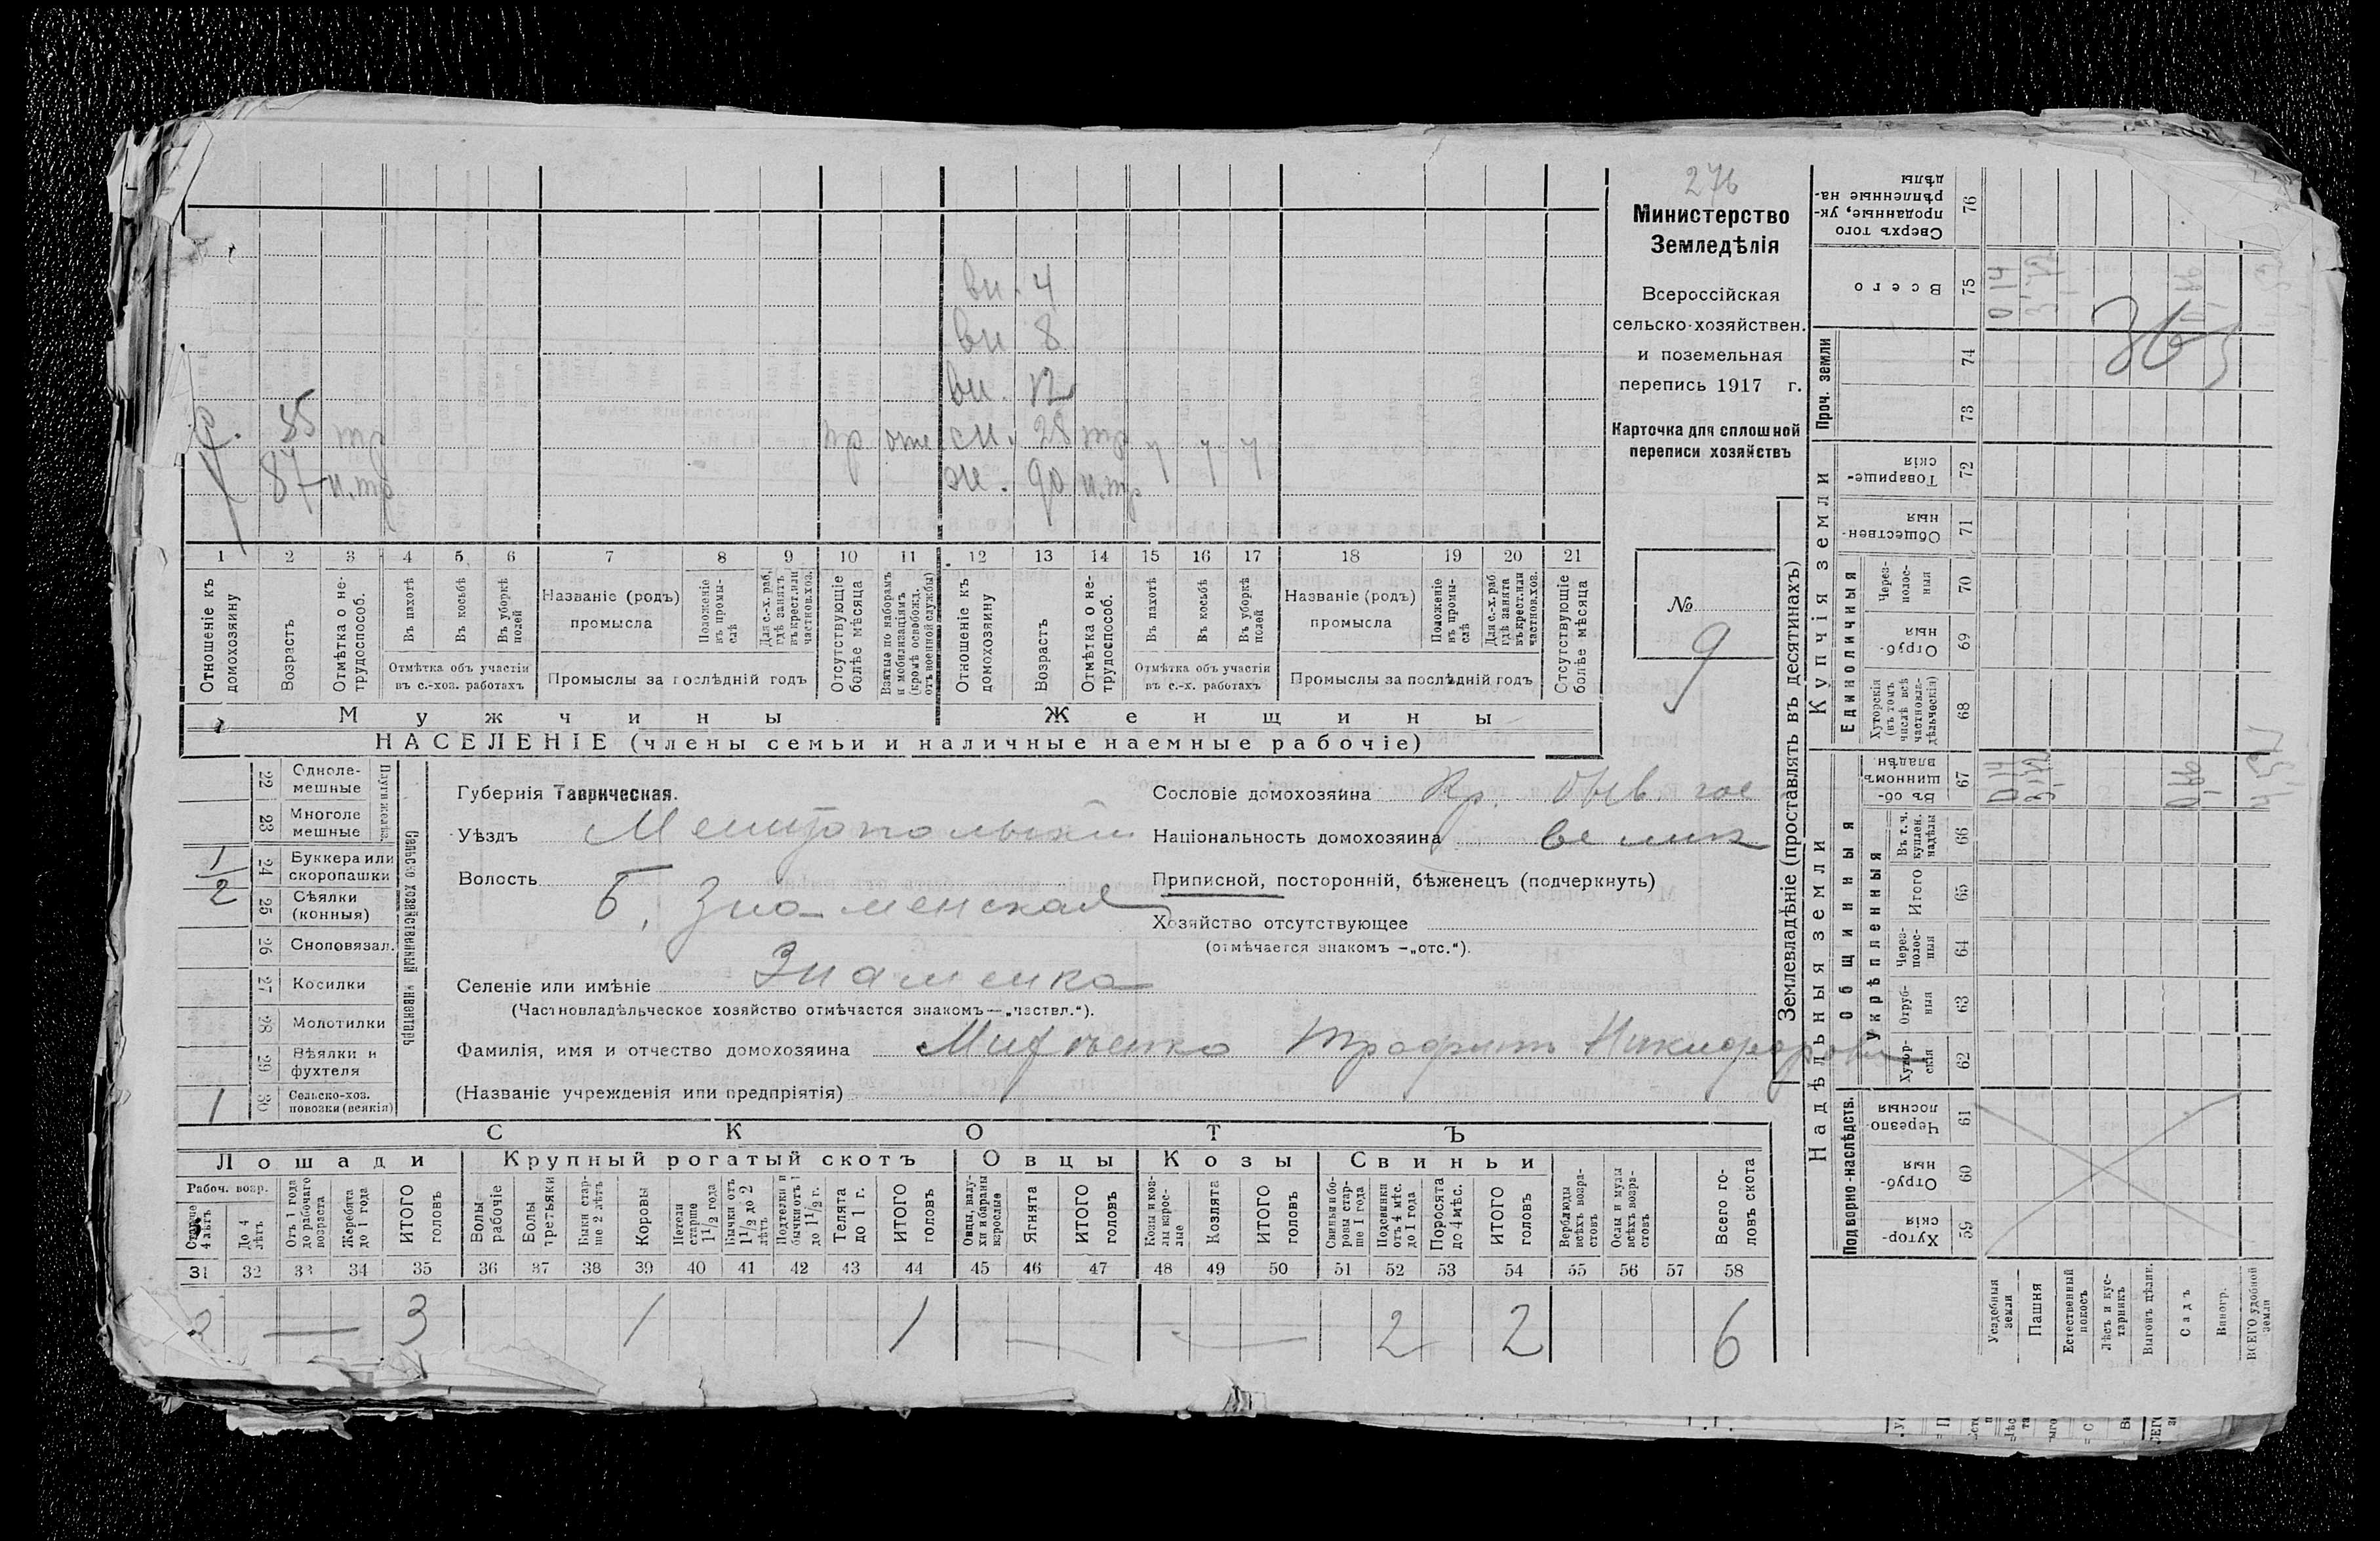 276
Министерство
Земледѣлія
Всероссійская
сельско-хозяйствен.
и поземельная
перепись 1917 г.
Карточка для сплошной
переписи хозяйствъ
№
9
вн. 4
вн 8
вн. 12
85 тр
пр
сн. 28 тр
87 н.тр
ж. 90 н.тр
1 2 3 4 5 6 7 8 9 10 11 12 13 14 15 16 17 18 19 20 21
Отношеніе къ домохозяину
Возрастъ
Отмѣтка о не-трудоспособ.
Въ пахотѣ
Въ косьбѣ
Въ уборкѣ полей
Отмѣтка объ участіи въ с.-хоз. работахъ
Названіе (родъ) промысла
Положеніе въ промы-слѣ
Для с.-х. раб. гдѣ занятъ въ крест. или частнов. хоз.
Промыслы за послѣдній годъ
Отсутствующіе болѣе мѣсяца
Взятые по наборамъ и мобилизаціямъ (кромѣ освобожд. отъ военной службы)
Отношеніе къ домохозяину
Возрастъ
Отмѣтка о не-трудоспособ.
Въ пахотѣ
Въ косьбѣ
Въ уборкѣ полей
Отмѣтка объ участіи въ с.-х. работахъ
Названіе (родъ) промысла
Положеніе въ промы-слѣ
Для с.-х. раб гдѣ занята въ крест. или частнов. хоз.
Промыслы за послѣдній годъ
Отсутствующіе болѣе мѣсяца
Мужчины Женщины
НАСЕЛЕНІЕ (члены семьи и наличные наемные рабочіе)
22 Одноле-мешные
23 Многоле мешные
Плуги желѣз.
1 24 Буккера или скоропашки
2 25 Сѣялки (конныя)
26 Сноповязал.
27 Косилки
28 Молотилки
29 Вѣялки и фухтеля
1 30 Сельско-хоз. повозки (всякія)
Сельско хозяйственный инвентарь
Губернія Таврическая.
Уѣздъ Мелитопольскій
Волость Б. Знаменская
Селеніе или имѣніе Знаменка
(Частновладѣльческое хозяйство отмѣчается знакомъ—„частвл.“).
Фамилія, имя и отчество домохозяина
(Названіе учрежденія или предпріятія)
Сословіе домохозяина Кр.
Національность домохозяина велик
Приписной, посторонній, бѣженецъ (подчеркнуть)
Хозяйство отсутствующее
(отмѣчается знакомъ —„отс.“).
СКОТЪ
Лошади Крупный рогатый скотъ Овцы Козы Свиньи
Рабоч. возр.
Старше 4 лѣтъ
До 4 лѣтъ
Отъ 1 года до рабочаго возраста
Жеребята до 1 года
ИТОГО головъ
Волы рабочіе
Волы третьяки
Быки стар-ше 2 лѣтъ
Коровы
Нетели старше 1 1/2 года
Бычки отъ 1 1/2 до 2 лѣтъ
Подтелки и бычки отъ 1 до 1 1/2 г.
Телята до 1 г.
ИТОГО головъ
Овцы, валу-хи и бараны взрослые
Ягнята
ИТОГО головъ
Козы и коз-лы взрос-лые
Козлята
ИТОГО головъ
Свиньи и бо-ровы стар-ше 1 года
Подсвинки отъ 4 мѣс. до 1 года
Поросята до 4 мѣс.
ИТОГО головъ
Верблюды всѣхъ возра-стовъ
Ослы и мулы всѣхъ возра-стовъ
Всего го-ловъ скота
31 32 33 34 35 36 37 38 39 40 41 42 43 44 45 46 47 48 49 50 51 52 53 54 55 56 57 58
2 — 3 1 1 — — 2 2 6
Землевладѣніе (проставлять въ десятинахъ)
Надѣльныя земли Купчія земли Проч. земли
Подворно-наслѣдств.
Общинныя
Укрѣпленныя
Единоличныя
Хутор-скія 59
Отруб-ныя 60
Черезпо-лосныя 61
Хутор-скія 62
Отруб-ныя 63
Через-полос-ныя 64
Итого 65
Въ т. ч. куплен. надѣлы 66
Въ об-щинномъ владѣн. 67
Хуторскія (въ томъ числѣ всѣ частновла-дѣльческія) 68
Отруб-ныя 69
Через-полос-ныя 70
Обществен-ныя 71
Товарище-скія 72
73
74
Всего 75
Сверхъ того проданные, ук-рѣпленные на-дѣлы 76
Усадебныя земли
Пашня
Естественный покосъ
Лѣсъ и кус-тарникъ
Выгонъ цѣлин.
Садъ
Виногр.
ВСЕГО удобной земли
0 14
0 14